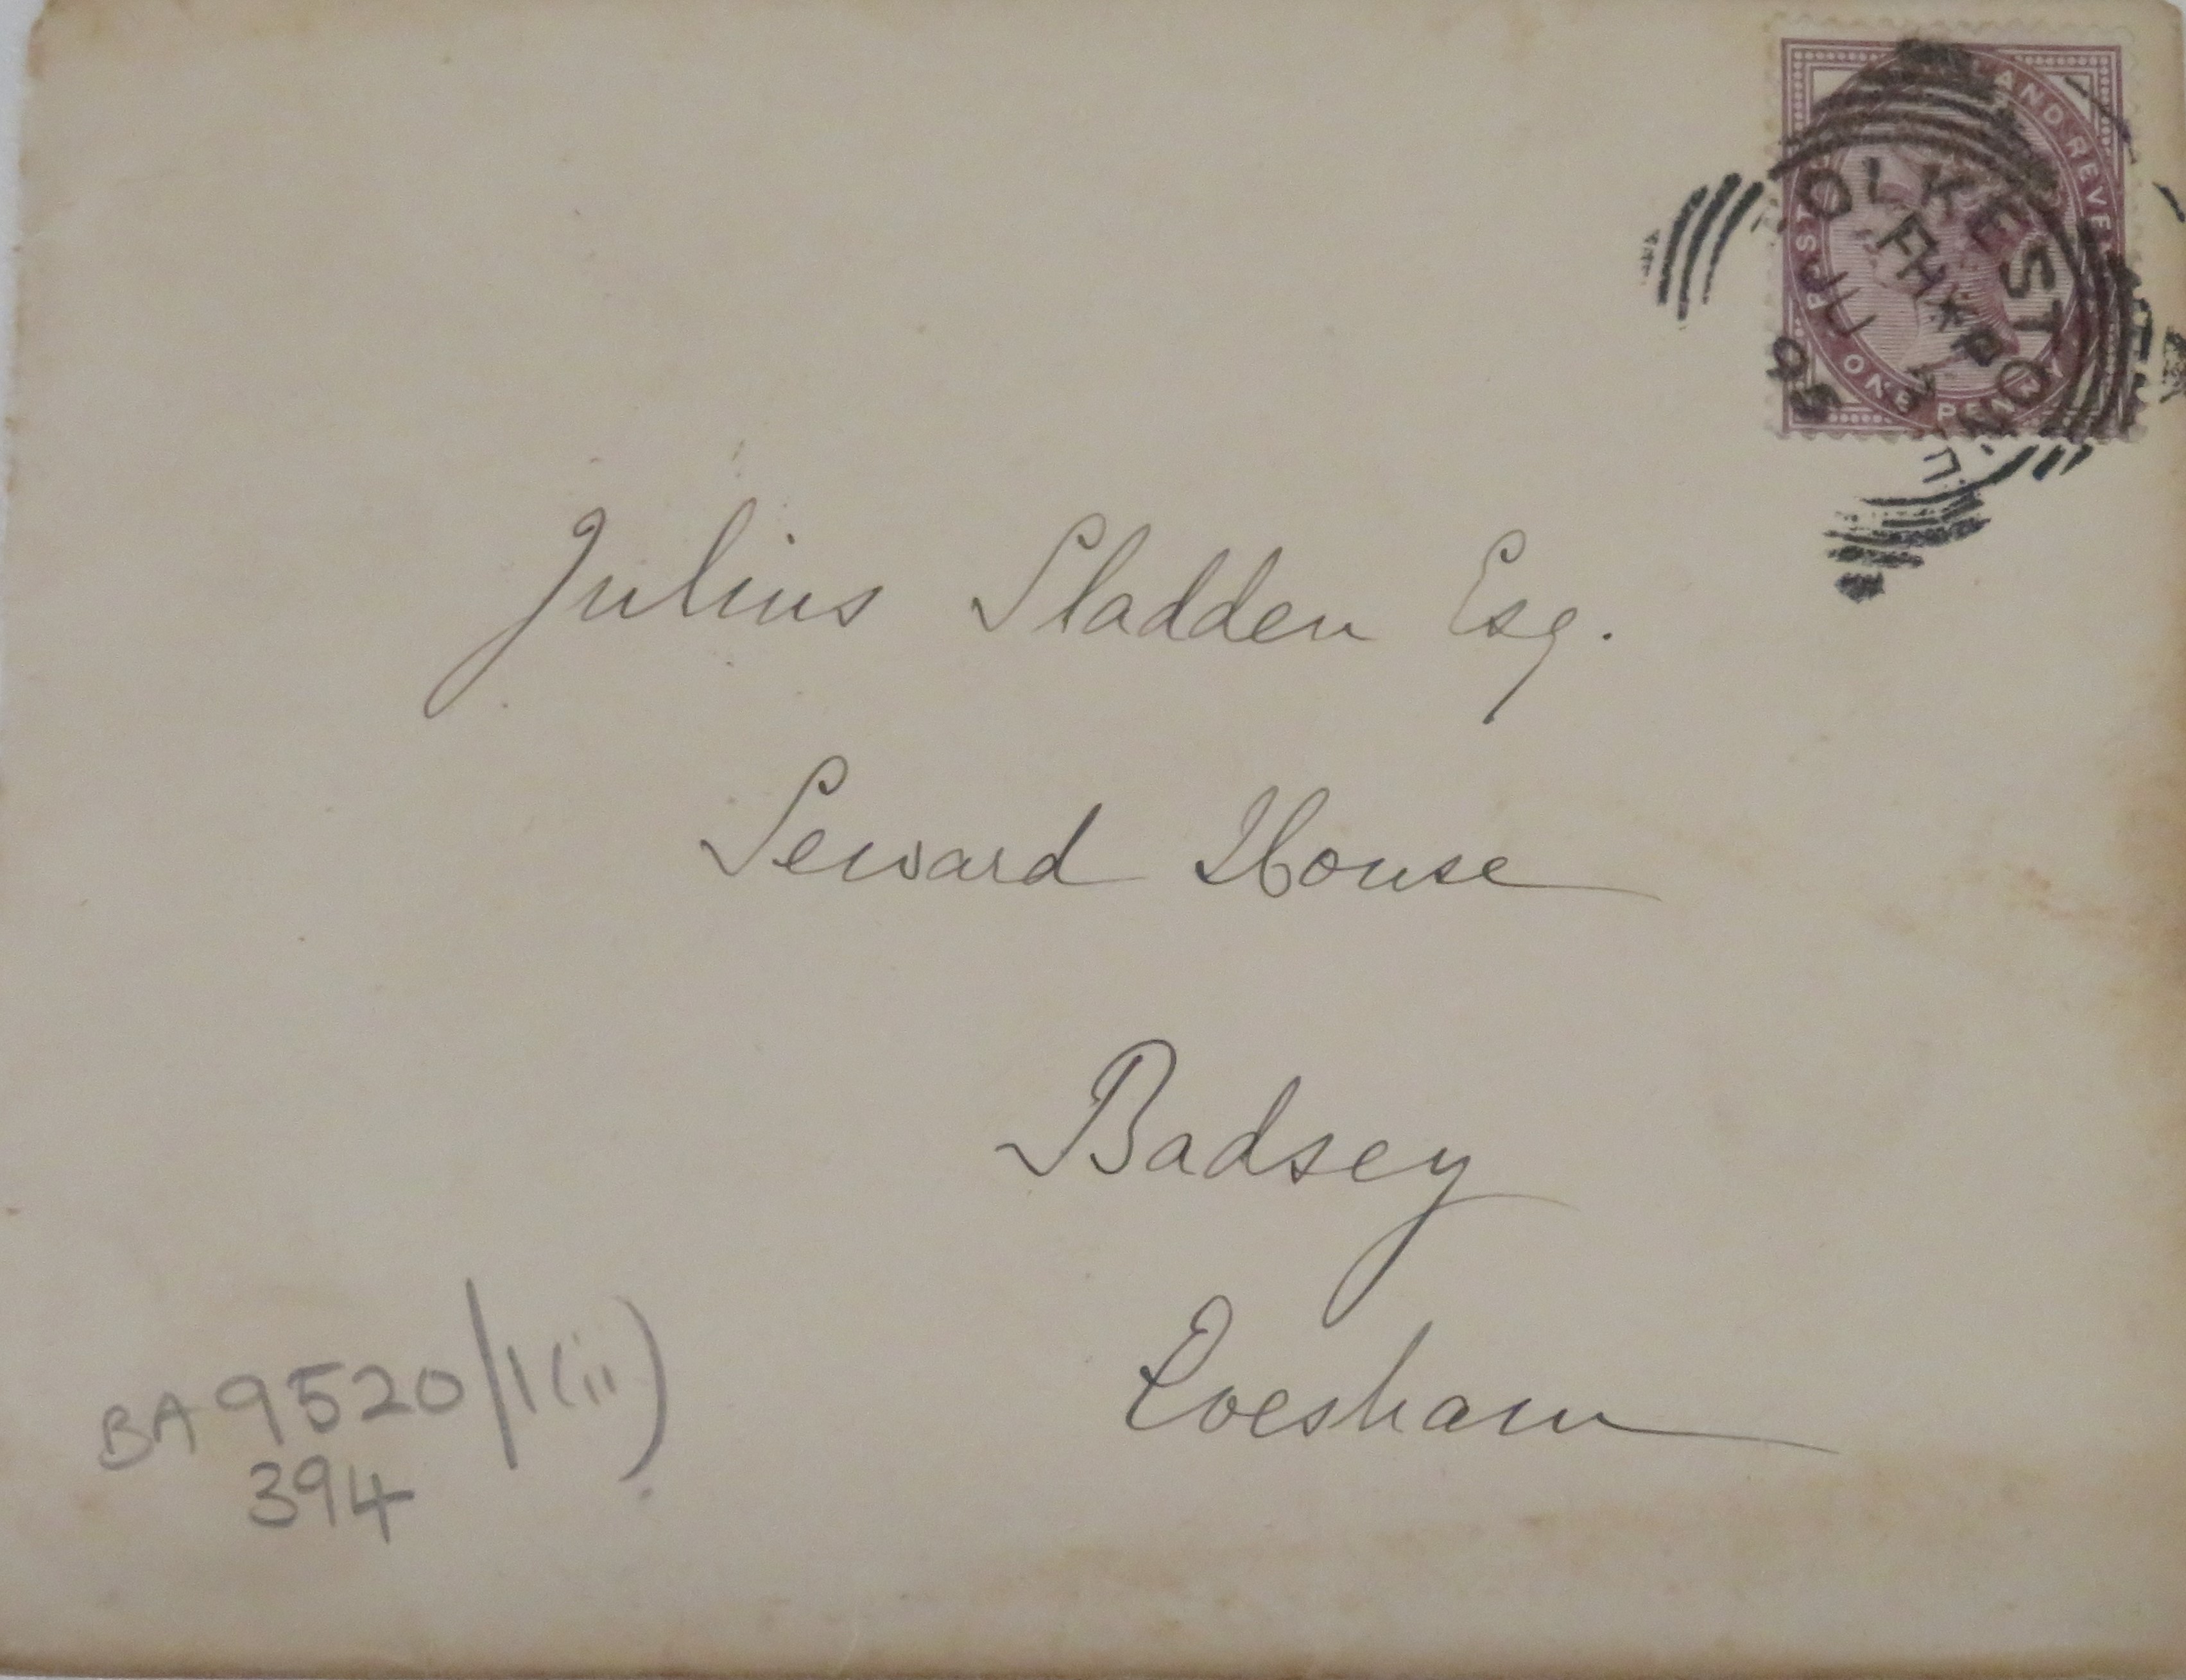 POSTAGE AND REVENUE
ONE PENNY
FOLKESTONE
JU
95
Julius Sladden Esq.
Seward House
Badsey
Evesham
BA 9520/1(ii)
394